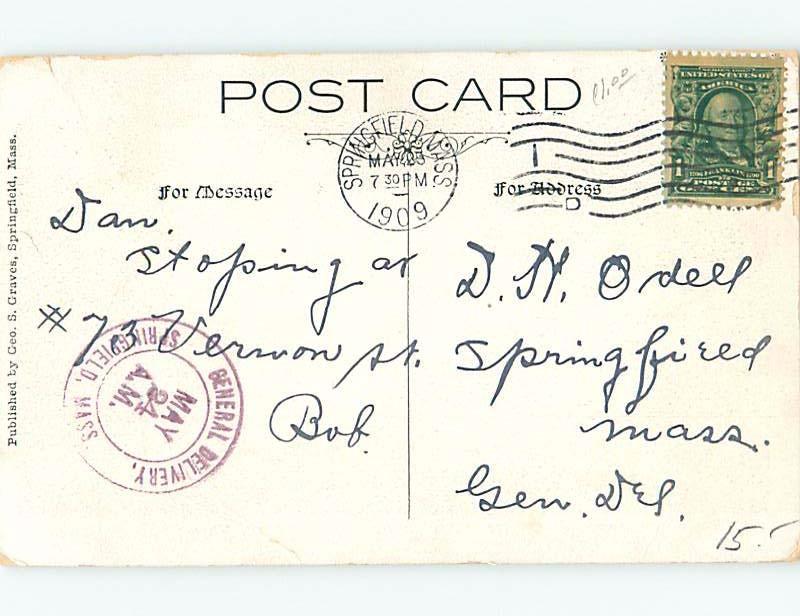 POST CARD
£1.00
SPRINGFIELD, MASS.
MAY 23
7 30 PM
1909
D
SERIES 1902
UNITED STATES OF
AMERICA
1 1706 FRANKLIN 1790 1
POSTAGE
For Message
For Address
Dan.
Stoping at
# 73 Vernon St.
Bob.
D. H. Odell
Springfield
Mass.
Gen. Del.
GENERAL DELIVERY,
MAY
24
A.M.
SPRINGFIELD, MASS
Published by Geo. S. Graves, Springfield, Mass.
15.-